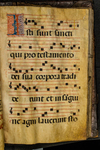 Isti sunt sancti
qui pro testamento
dei sua corpora tradi
de runt et in sangui
ne agni laverunt sto